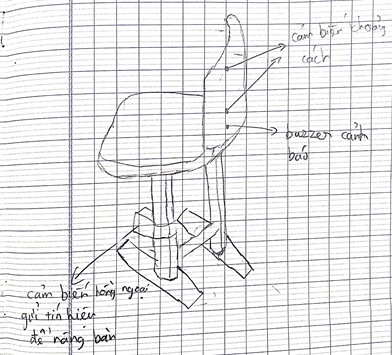 cảm biến khoảng
cách
buzzer cảnh
báo
cảm biến hồng ngoại
gửi tín hiệu
để nâng bàn